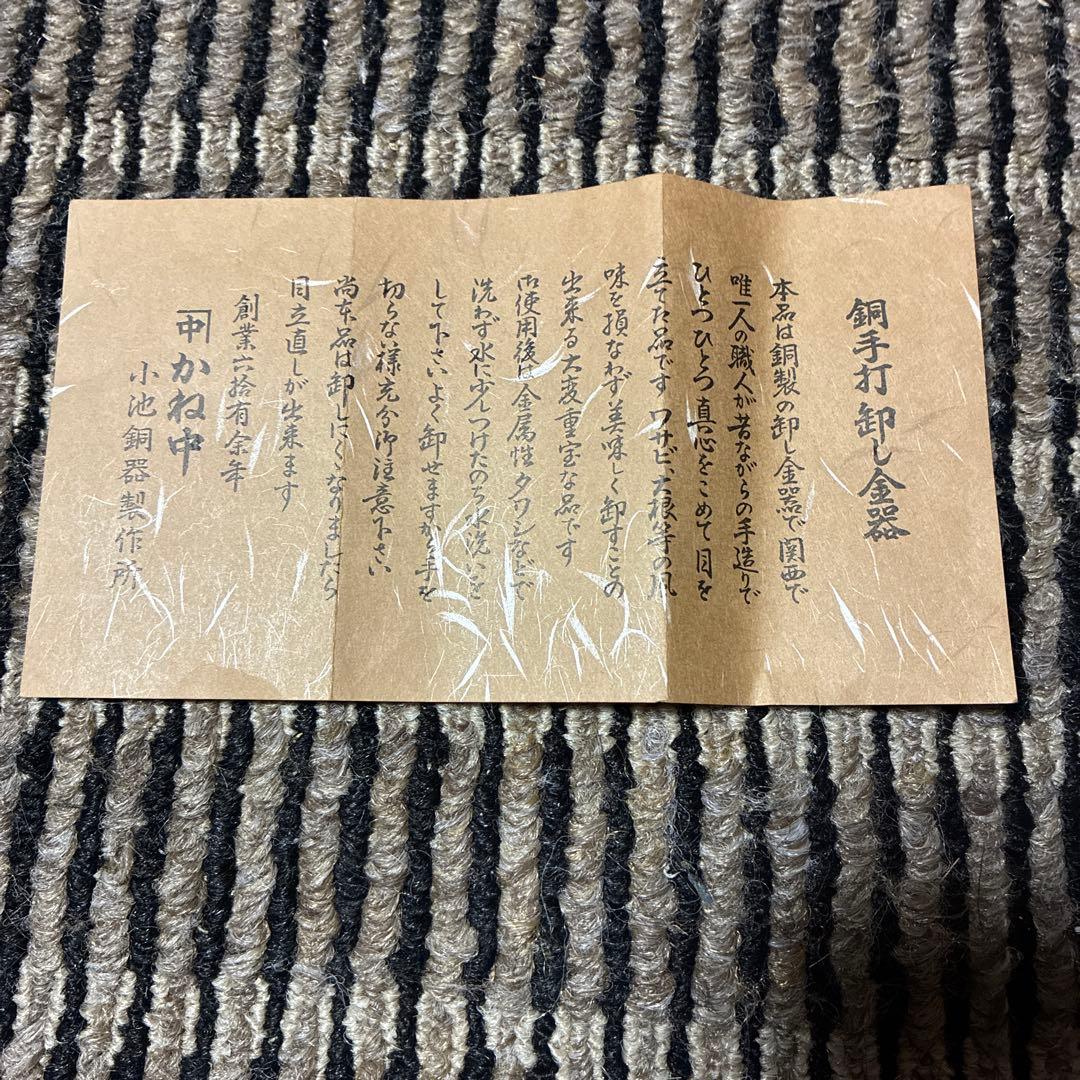 銅手打卸し金器
本品は銅製の卸し金器で関西で
唯一人の職人が昔ながらの手造りで
ひとつひとつ真心をこめて目を
立てた品ですワサビ、大根等の風
味を損なわず美味しく卸すことの
出来る大変重宝な品です
御使用後は金属性タワシなどで
洗わず水に少しつけたのち水洗いを
して下さいよく卸せますから手を
切らない様充分御注意下さい
尚本品は卸しにくくなりましたら
目立直しが出来ます
創業六拾有余年
中かね中
小池銅器製作所